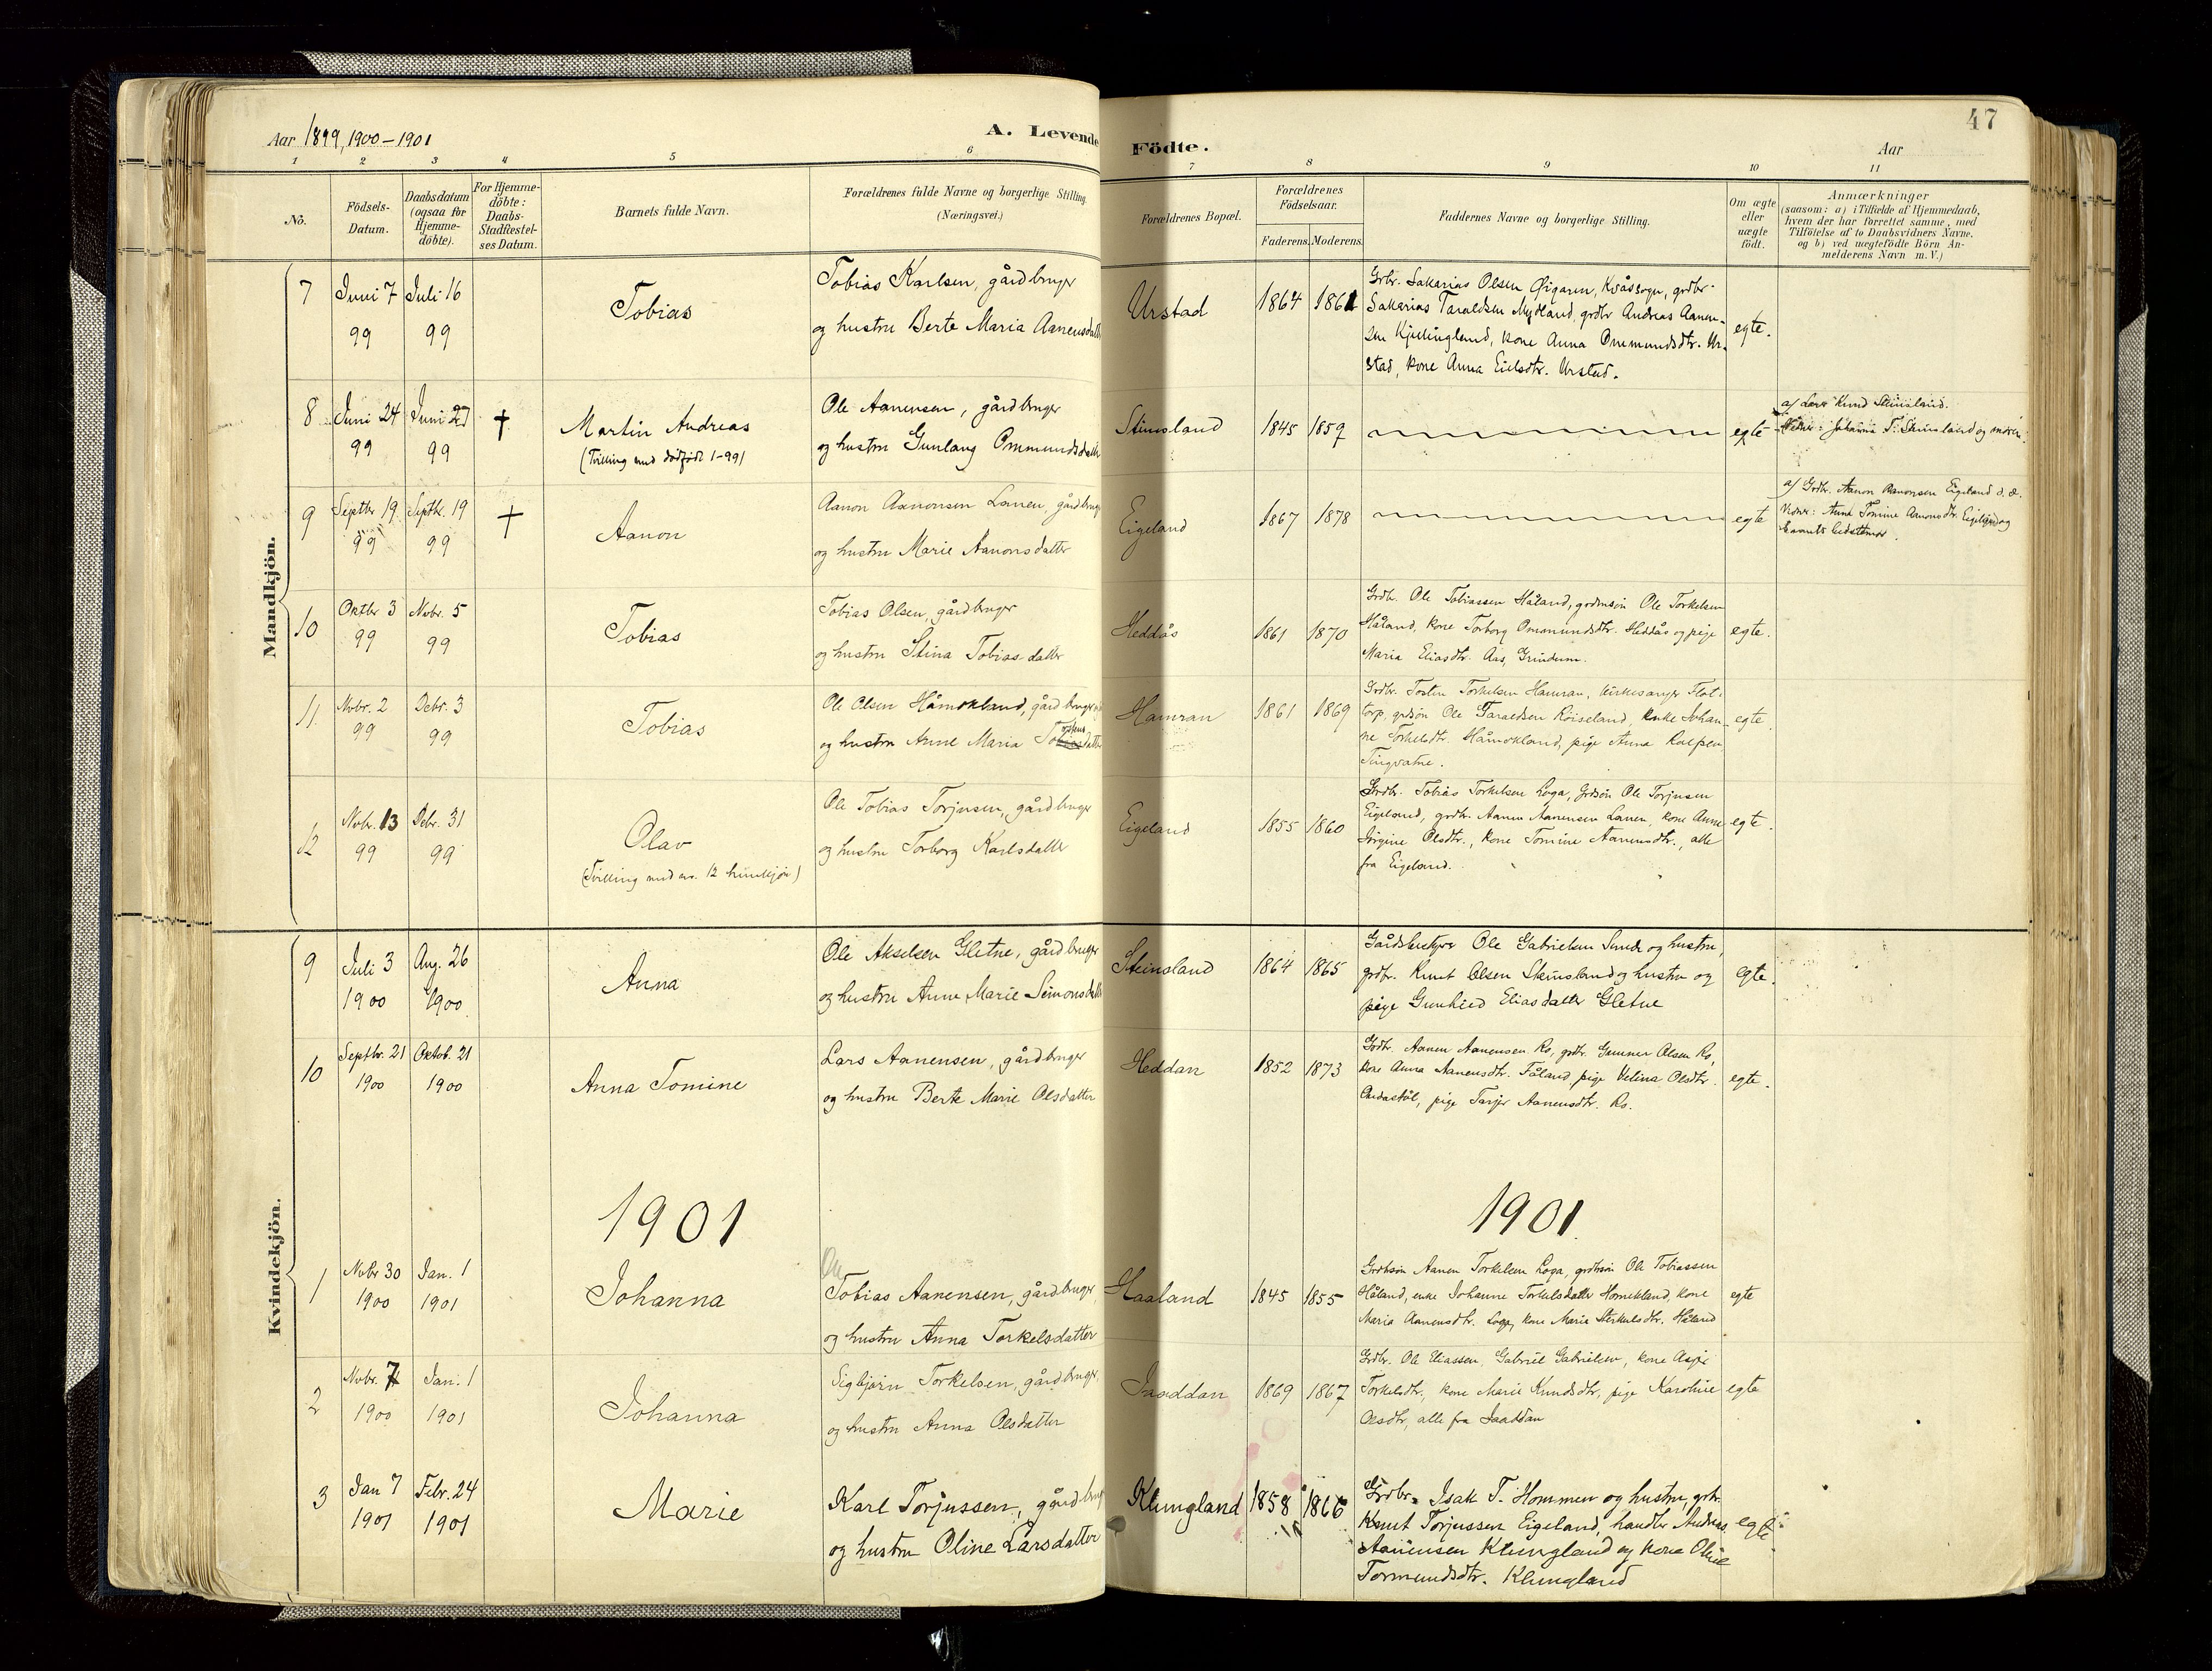 47
Aar 1899, 1900-1901
A. Levende Födte.
Aar
1 2 3 4 5 6 7 8 9 10 11
No.
Födsels-Datum.
Daabsdatum (ogsaa for Hjemme-döbte).
For Hjemme-döbte: Daabs-Stadfæstel-ses Datum.
Barnets fulde Navn.
Forældrenes fulde Navne og borgerlige Stilling. (Næringsvei.)
Forældrenes Bopæl.
Forældrenes Födselsaar.
Faderens. Moderens.
Faddernes Navne og borgerlige Stilling.
Om ægte eller uægte födt.
Anmærkninger
(saasom: a) i Tilfælde af Hjemmedaab,
hvem der har forrettet samme, med
Tilföielse af to Daabsvidners Navne.
og b) ved uægtefödte Börn An-
melderens Navn m. V.)
Mandkjön.
7 Juni 7 99 Juli 16 99
Tobias
Tobias Karlsen, gårdbruger
og hustru Berte Maria Aanensdatt
Urstad 1864 1861
Grbr. Sakarias Olsen Øigaren, Kvåssogn, grdbr.
Sakarias Taraldsen Mydland, grdbr Andreas Aanen-
sen Kjellingland, kone Anna Onemundsdtr. Ur-
stad, kone Anna Eielsdtr. Urstad.
egte.
8 Juni 24 99 Juni 27 99 †
Martin Andreas
(Tvilling med dödfödt 1-99)
Ole Aanensen, gårdbruger
og hustru Gunlaug Ommundsdatt
Steinsland 1845 1859
egte
a) Knud Steinsland.
Johanna T. Steinsland og moren
9 Septbr 19 99 Septbr. 19 99 †
Aanon
Aanon Aanonsen Lonen, gårdbrug
og hustru Marie Aanonsdatter
Eigeland 1867 1878
egte
a) Grdbr. Aanon Aanonsen Eigeland d. æ.
Vidner: Anna Tomine Aanonsdtr. Eigeland og
barnets bedstemor.
10 Oktbr 3 99 Novbr. 5 99
Tobias
Tobias Olsen, gårdbruger
og hustru Stina Tobiasdatter
Heddås 1861 1870
Grdb. Ole Tobiassen Håland, grdmsön Ole Torkelsen
Håland, kone Torborg Omomundsdtr. Heddås og pige
Maria Eliasdtr. Aas, Grindum.
egte.
11 Novbr. 2 99 Debr. 3 99
Tobias
Ole Olsen Håmokland, gårdbruger
og hustru Anne Maria Tostensdatter
Hamran 1861 1869
Grdbr. Tosten Torkelsen Hamran, kirkesanger Flot-
torp, grdsön Ole Taraldsen Röiseland, enke Johan-
ne Torkelsdtr. Håmokland, pige Anna
Tingvatne.
egte
12 Novbr. 13 99 Debr. 31 99
Olav
(Tvilling med nr. 12 hunkjön)
Ole Tobias Torjusen, gårdbruger
og hustru Torborg Karlsdatter
Eigeland 1855 1860
Grdb. Tobias Torkelsen Loga, grdsön Ole Torjusen
Eigeland, grdbr. Aanen Aanensen Lonen, kone Anne
Jörgine Olsdtr., kone Tomine Aanensdtr., alle
fra Eigeland.
egte.
Kvindekjön.
9 Juli 3 1900 Aug. 26 1900
Anna
Ole Akselsen Gletne, gårdbruger
og hustru Anne Marie Simonsdatt
Steinsland 1864 1865
Gårdsbestyrer Ole Gabrielsen Sunde og hustru,
grdbr. Knut Olsen Steinsland og hustru og
pige Gunhild Eliasdatter Gletne
egte.
10 Septbr. 21 1900 Oktob. 21 1900
Anna Tomine
Lars Aanensen, gårdbruger
og hustru Berte Marie Olsdatter
Heddan 1852 1873
Grdbr. Aanen Aanensen Ro, grdbr. Gunner Olsen Ro,
kone Anna Aanensdtr. Fåland, pige Velina Olsdtr.
pige Tarjer Aanensdtr. Ro.
egte.
1901
1901
1 Novbr 30 1900 Jan. 1 1901
Johanna
Tobias Aanensen, gårdbruger
og hustru Anna Torkelsdatter
Haaland 1845 1855
Grdbsön Aanen Torkelsen Loga, grdbsön Ole Tobiassen
Håland, enke Johanne Torkelsdatter Homekland, kone
Maria Aanensdtr. Loga, kone Marie Sterkelsdtr. Håland
egte
2 Novbr. 7 1900 Jan. 1 1901
Johanna
Sigbjørn Torkelsen, gårdbruger
og hustru Anna Olsdatter
Jaaddan 1869 1867
Grdbr. Ole Eliassen, Gabriel Gabrielsen, kone Asjer
Torkelsdtr., kone Marie Knudsdtr, pige Karoline
Olsdtr, alle fra Jaaddan
egte
3 Jan 7 1901 Febr. 24 1901
Marie
Karl Torjussen, gårdbrug
og hustru Oline Larsdatter
Klungland 1858 1866
Grdbr. Isak T. Hommen og hustru, grbr.
Knut Torjussen Eigeland, handler Andreas
Aanensen Klungland og kone Oline
Tormundsdtr. Klungland
egte.